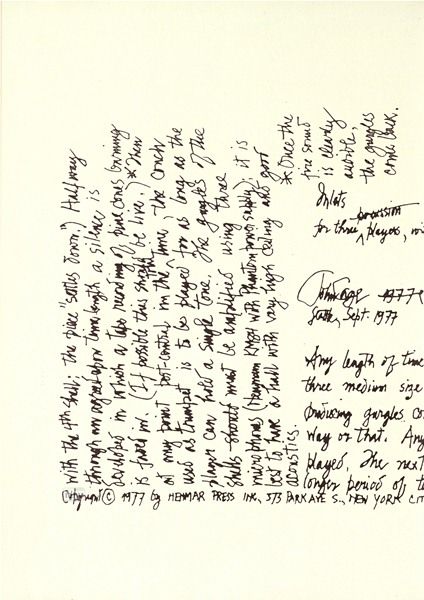 Inlets
procession
for three players,
John Cage 1977
Sept. 1977
Any length of time
three medium size
producing gurgles
way or that. Any
played. The next
longer period of
with the 4th shell; the piece "settles down".) Halfway
through an agreed-upon time-length a silence is
developed in which a tape recording of pine cones burning
is faded in. (If possible this might be live.) * Then
at any point post-central in the time, the conch
used as trumpet is to be played for as long as the
player can hold a single tone. The gurgles of the
shells should must be amplified using three
microphones (Neumann with phantom power supply); it is
best to have a hall with very high ceiling and good
acoustics.
* Once the
fire sound
is clearly
audible,
the gurgles
come back.
Copyright © 1977 by HENMAR PRESS INC., 373 PARK AVE S., NEW YORK CIT